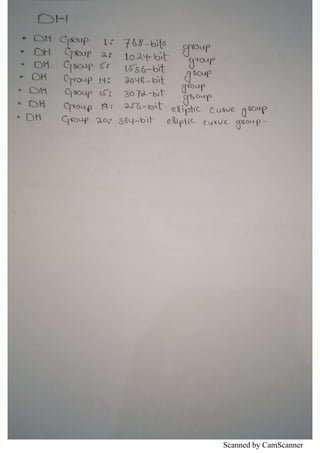 DH
• DH Group 1: 768-bits group
• DH Group 2: 1024-bit group
• DH Group 5: 1536-bit group
• DH Group 14: 2048-bit group
• DH Group 15: 3072-bit group
• DH Group 19: 256-bit elliptic curve group
• DH Group 20: 384-bit elliptic curve group.
Scanned by CamScanner